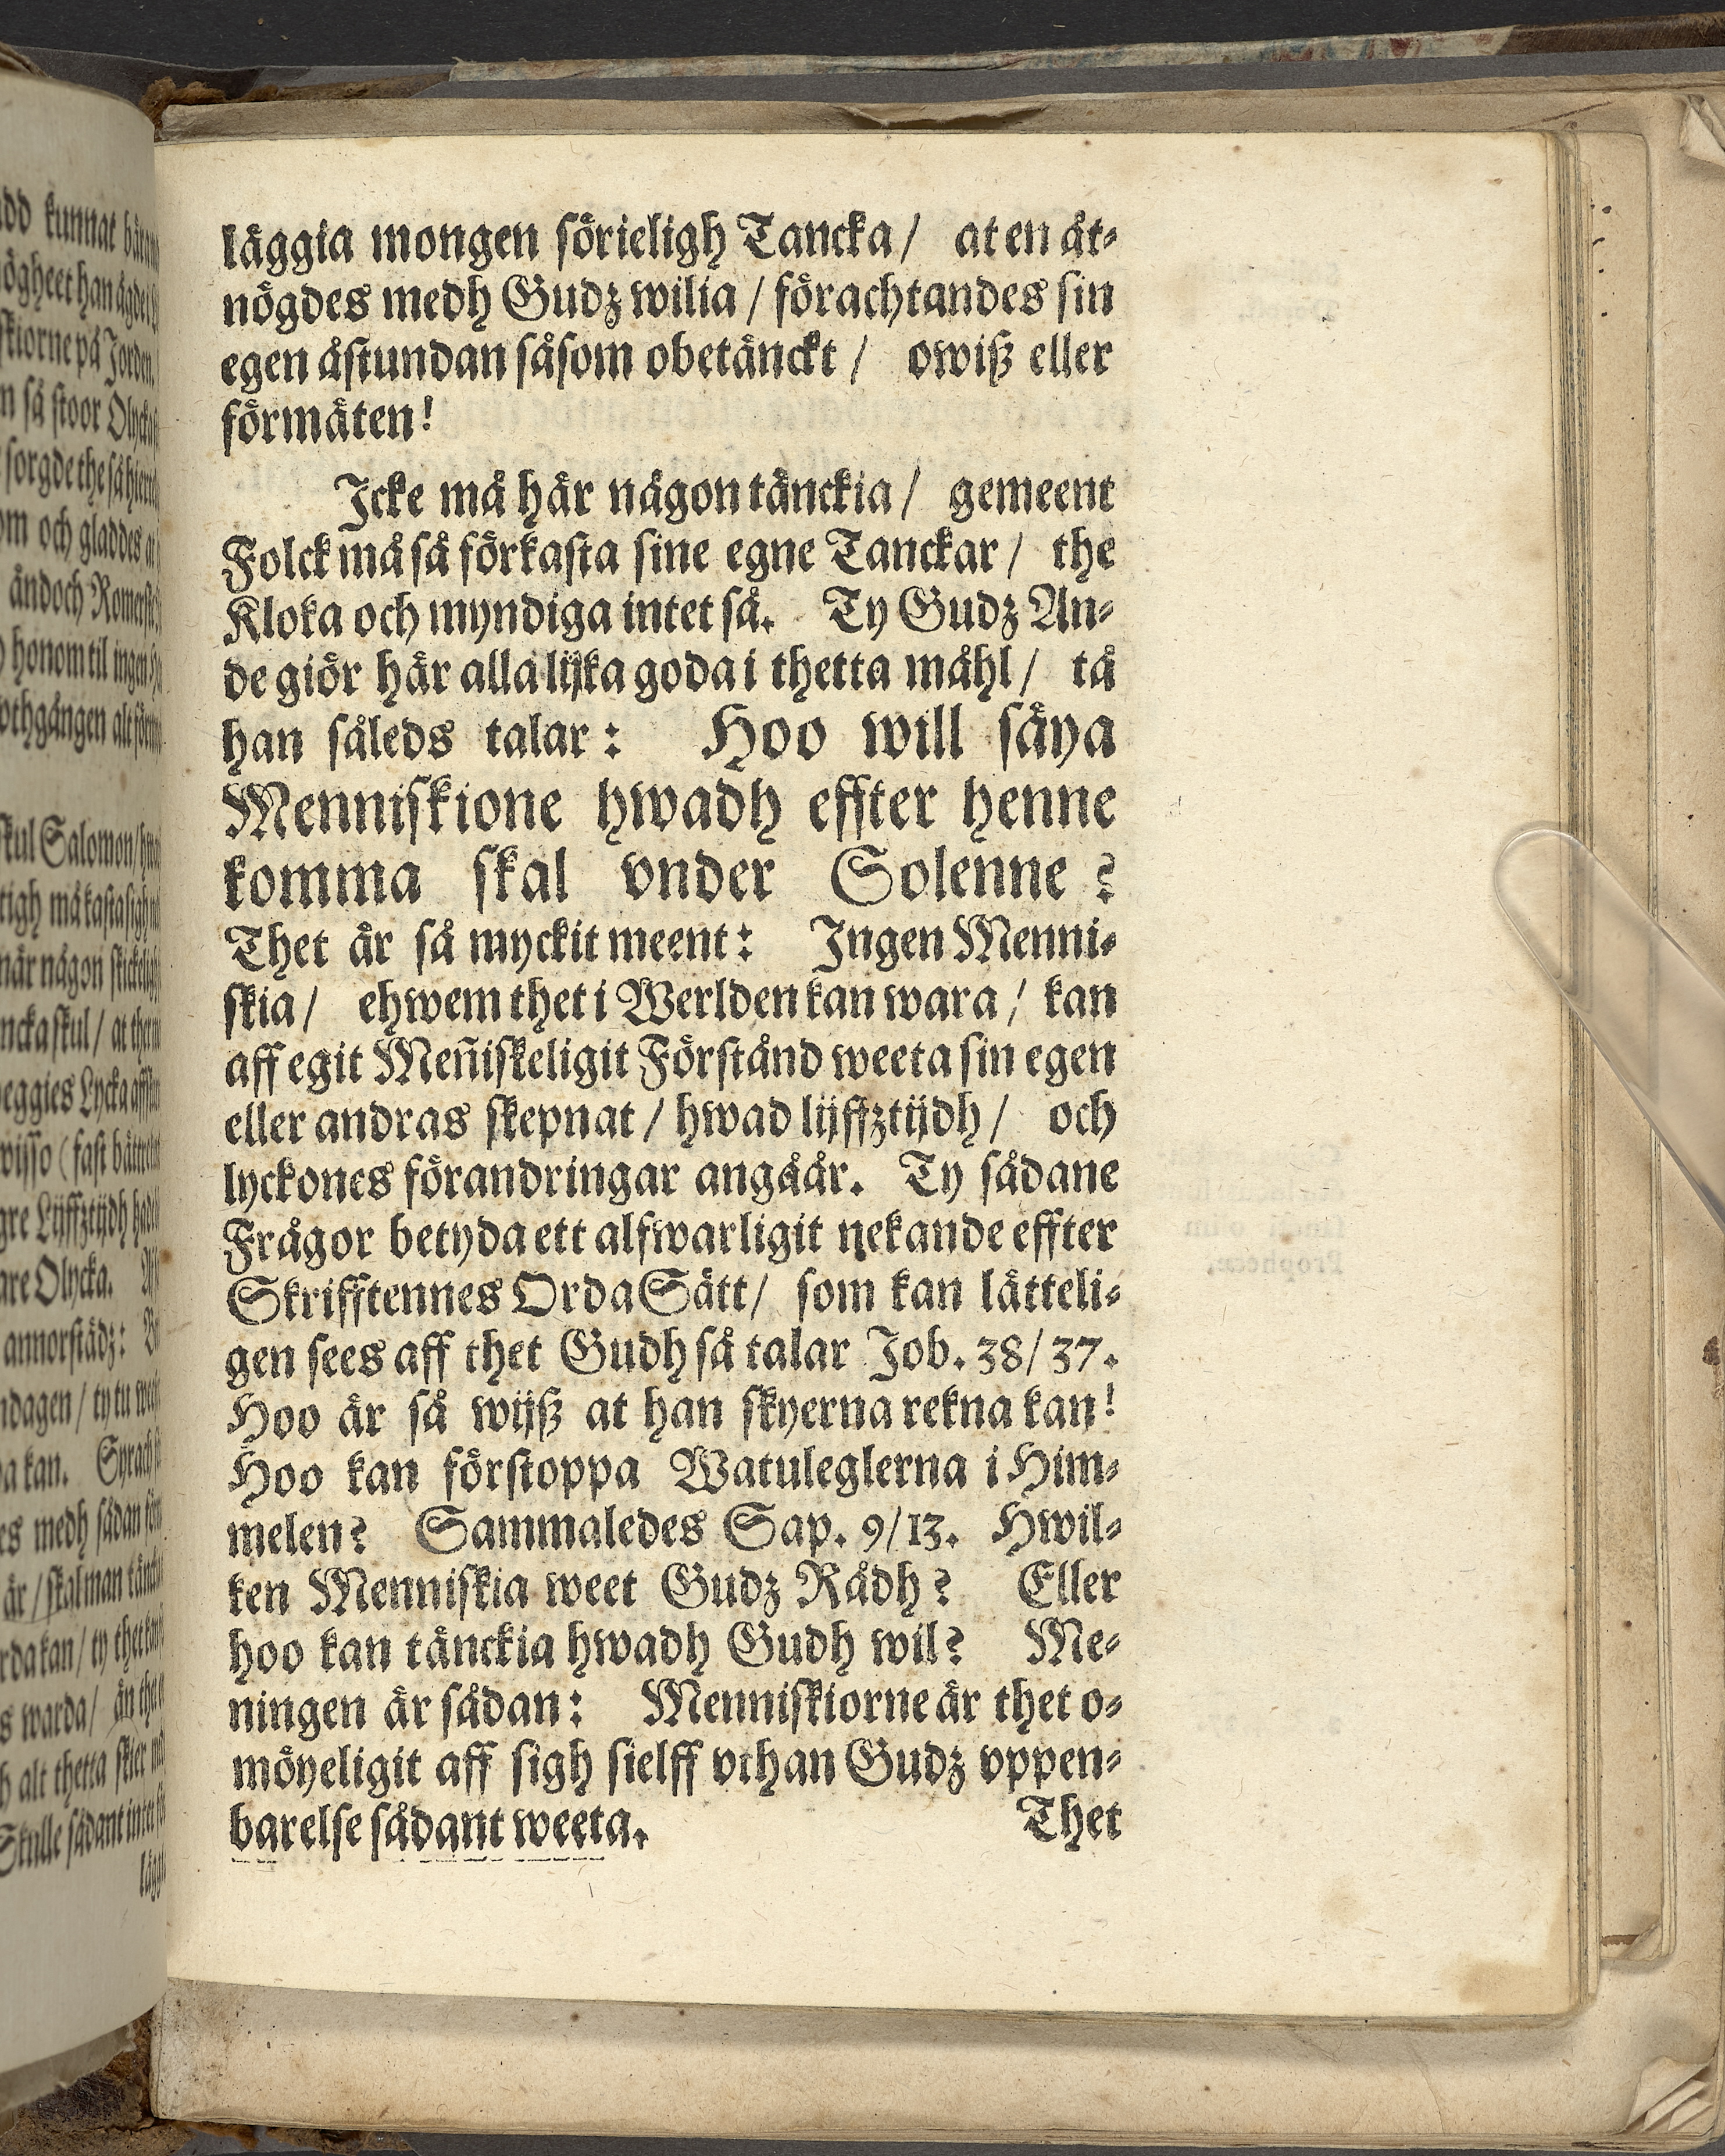 läggia mongen sörieligh Tancka / at en åt-
nögdes medh Gudz wilia / förachtandes sin
egen åstundan såsom obetänckt / owiß eller
förmäten!
Icke må här någon tänckia / gemeent
Folck må så förkasta sine egne Tanckar / the
Kloka och myndiga intet så. Ty Gudz An-
de giör här alla lijka goda i thetta måhl / tå
han således talar: Hoo will säya
Menniskione hwadh effter henne
komma skal vnder Solenne?
Thet är så myckit meent: Ingen Menni-
skia / ehwem thet i Werlden kan wara / kan
aff egit Meñiskeligit Förstånd weeta sin egen
eller andras skepnat / hwad lijffztijdh / och
lyckones förandringar angåår. Ty sådane
Frågor betyda ett alfwarligit nekande effter
Skrifftennes Orda Sätt / som kan lätteli-
gen sees aff thet Gudh så talar Job. 38/37.
Hoo är så wijß at han skyerna rekna kan!
Hoo kan förstoppa Watuleglerna i Him-
melen? Sammaledes Sap. 9/13. Hwil-
ken Menniskia weet Gudz Rådh? Eller
hoo kan tänckia hwadh Gudh wil? Me-
ningen är sådan: Menniskiorne är thet o-
möyeligit aff sigh sielff vthan Gudz vppen-
barelse sådant weeta. Thet